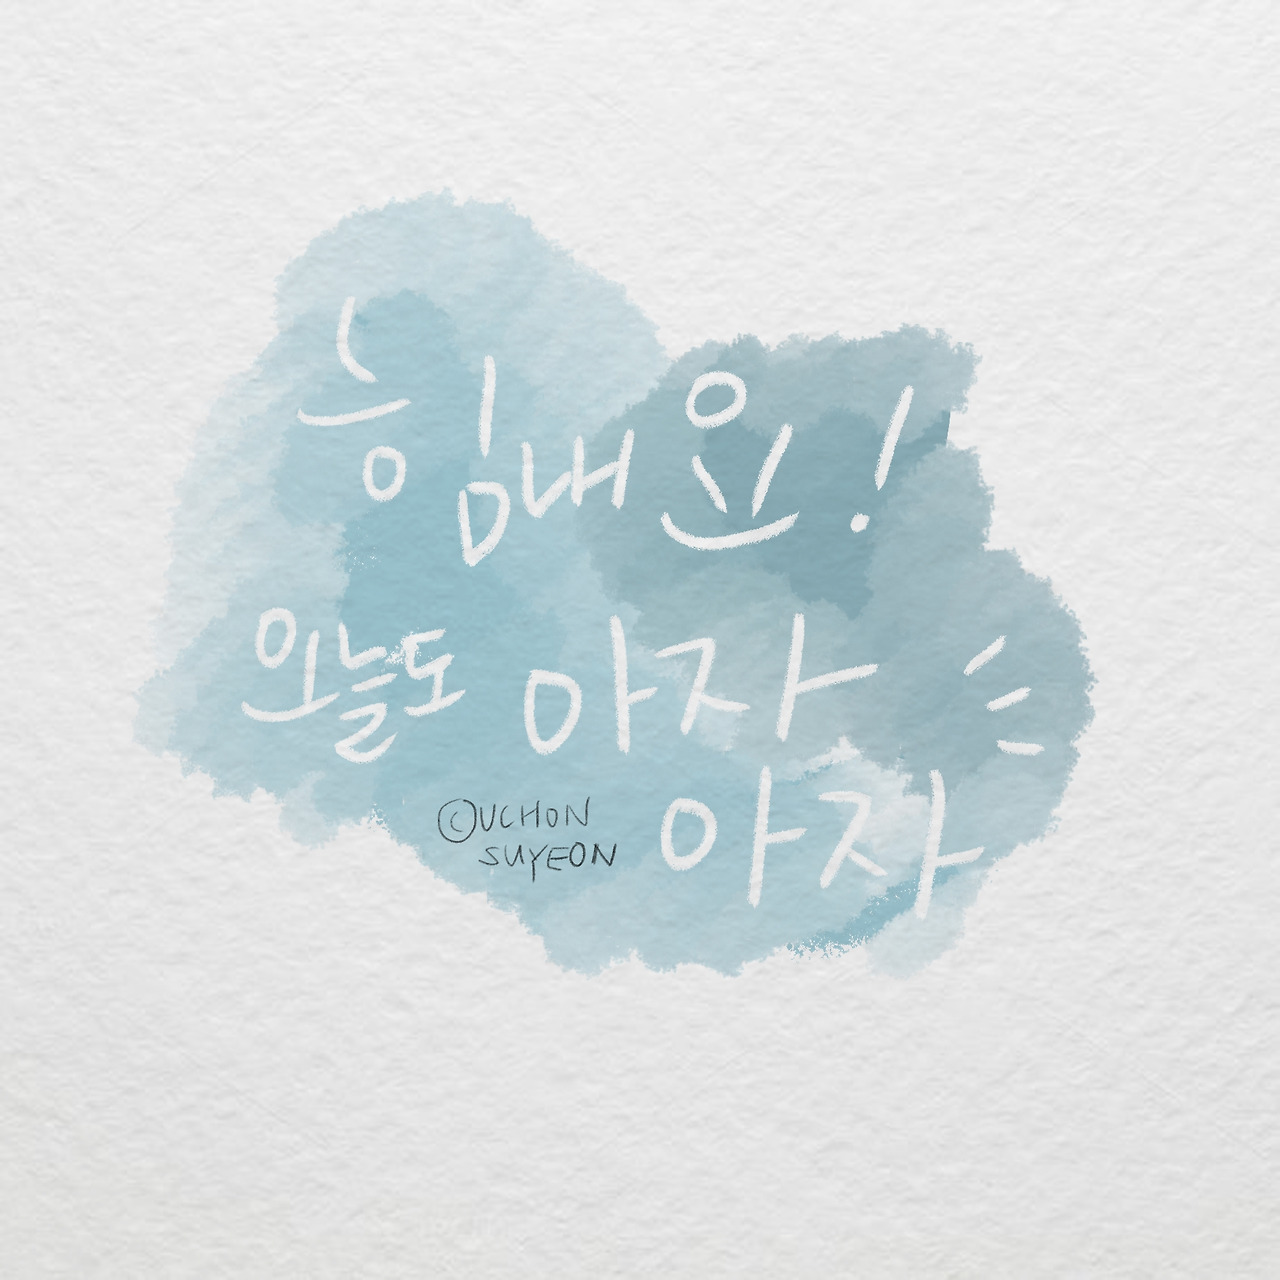 힘내요!
오늘도 아자
아자
©UCHON
SUYEON